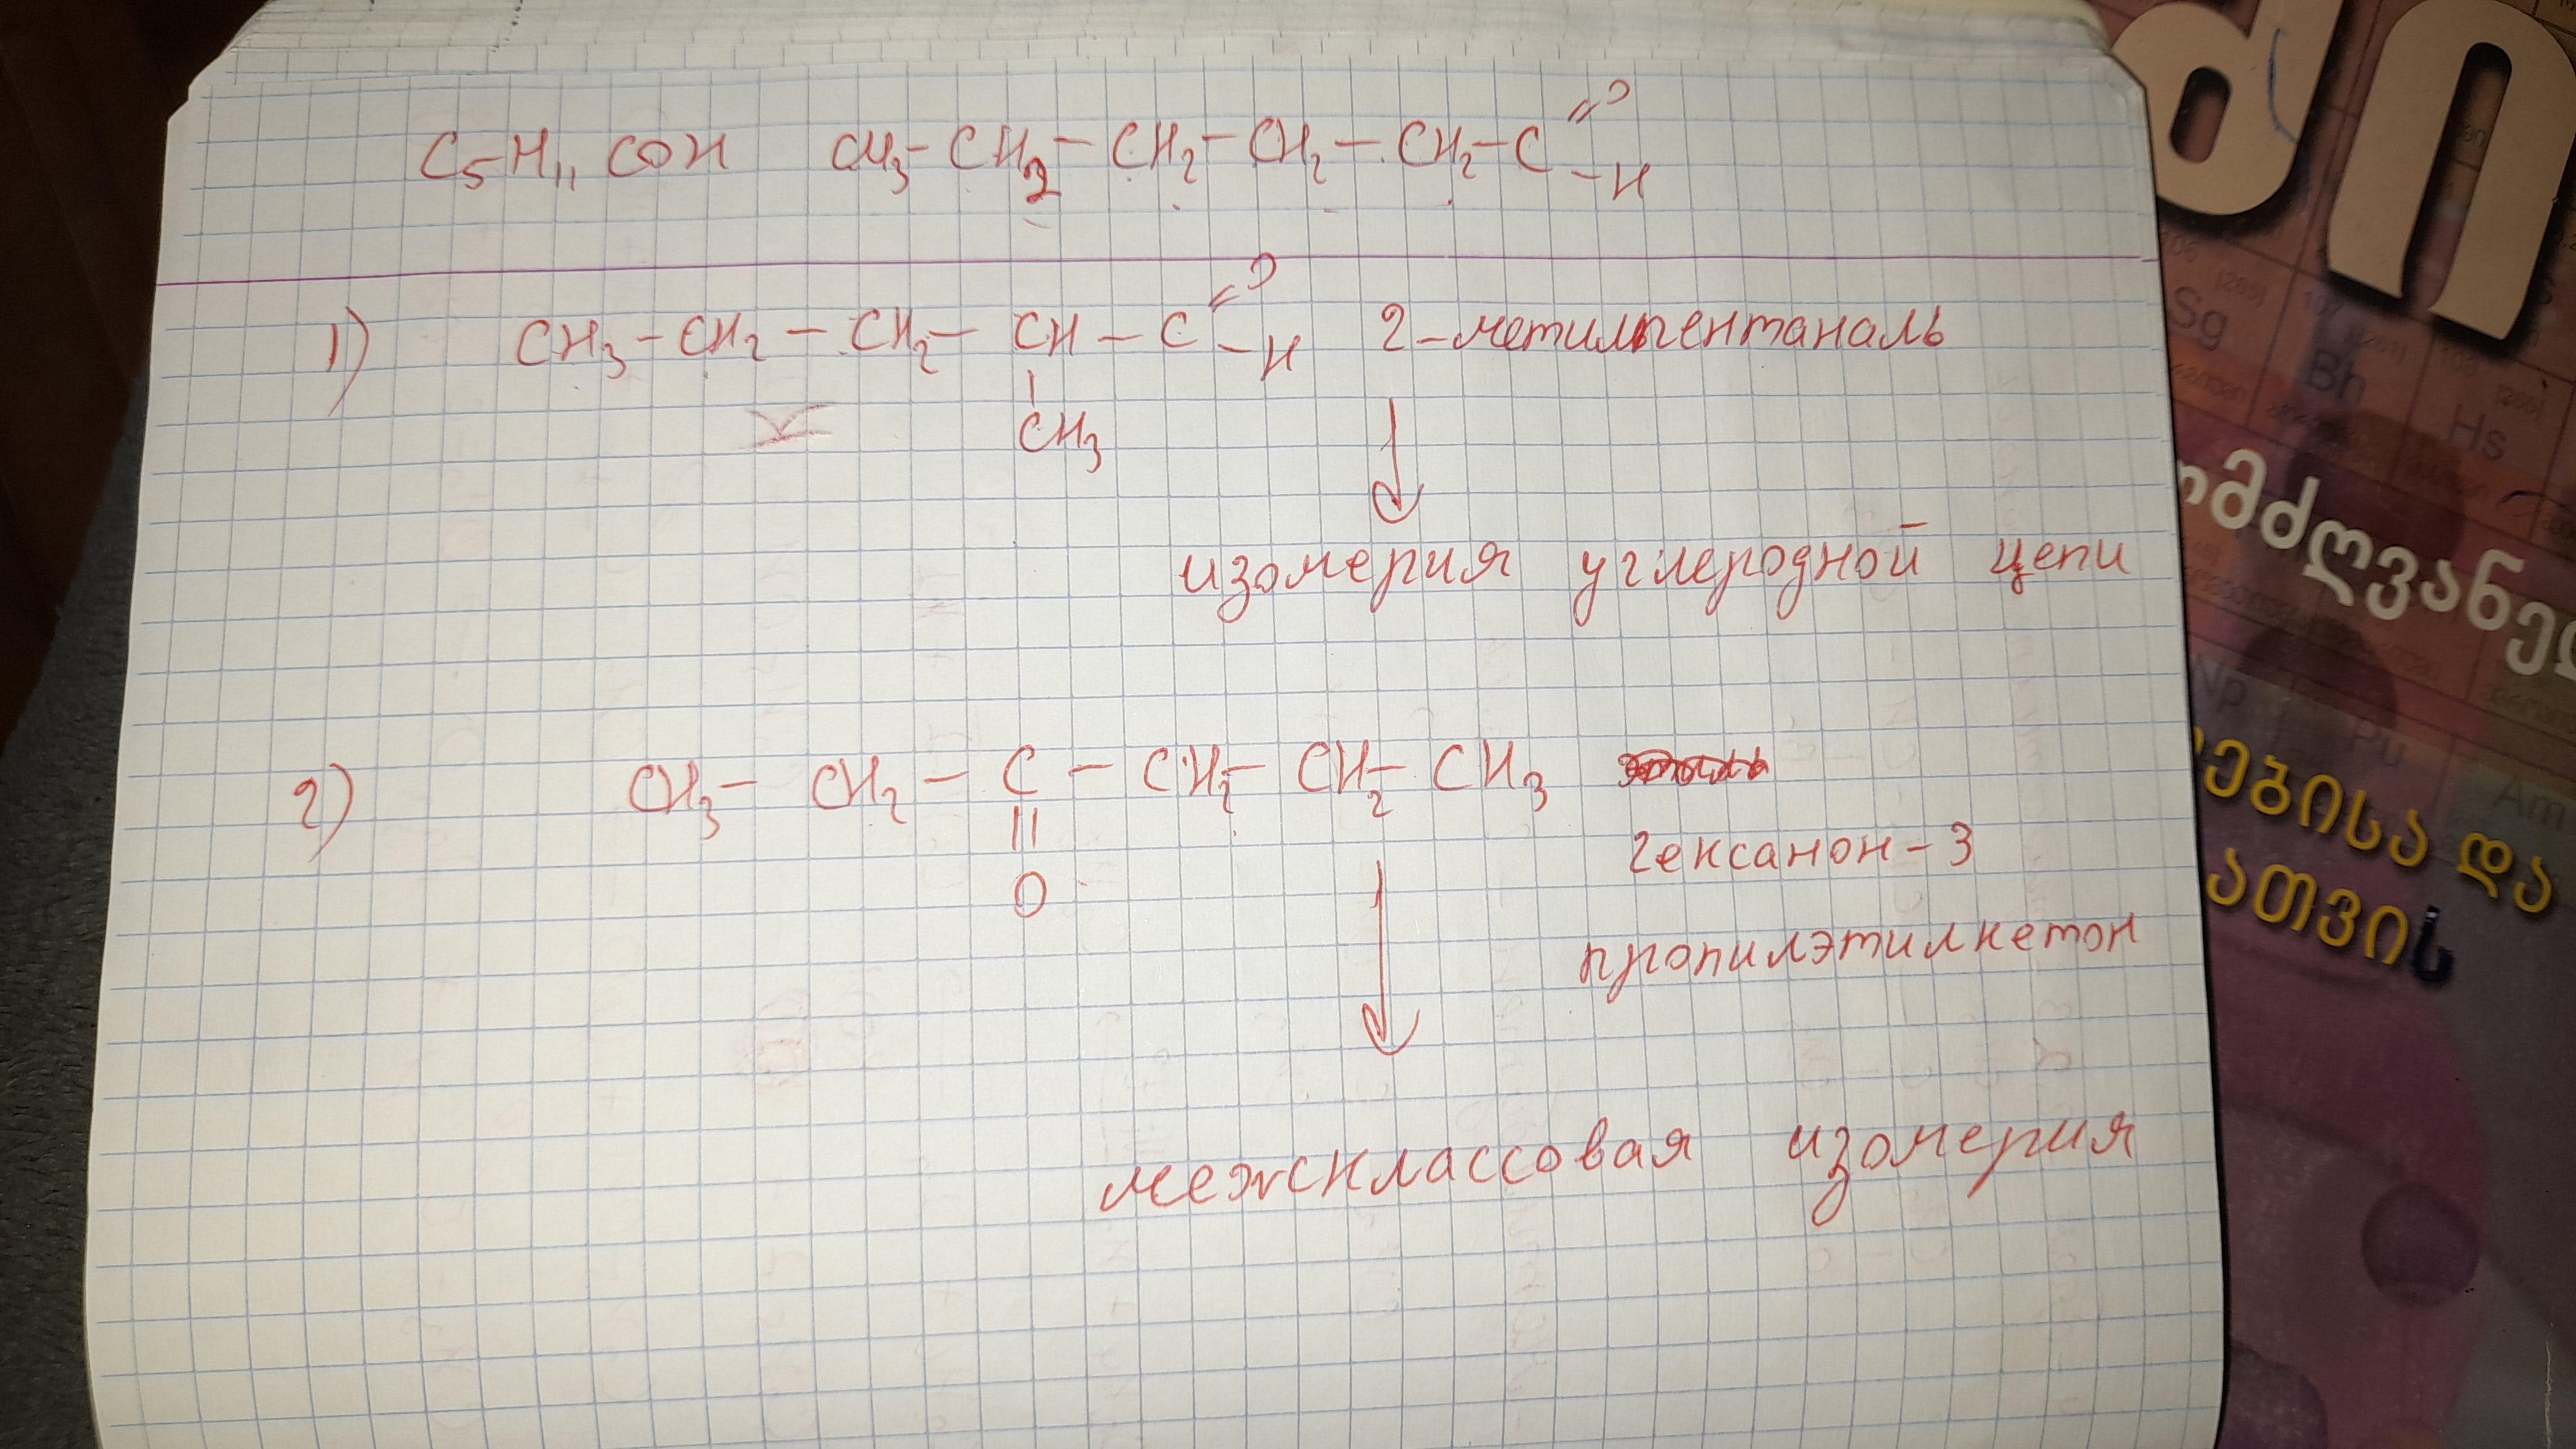 C₅H₁₁COH CH₃-CH₂-CH₂-CH₂-CH₂-C=O
-H
1) CH₃-CH₂-CH₂-CH-C=O 2-метилпентаналь
-H
CH₃
изомерия углеродной цепи
2) CH₃-CH₂-C-CH₂-CH₂-CH₃
O
гексанон-3
пропилэтилкетон
межклассовая изомерия
ძი
Sg
Bh
Hs
Np
Pu
Am
ათვის